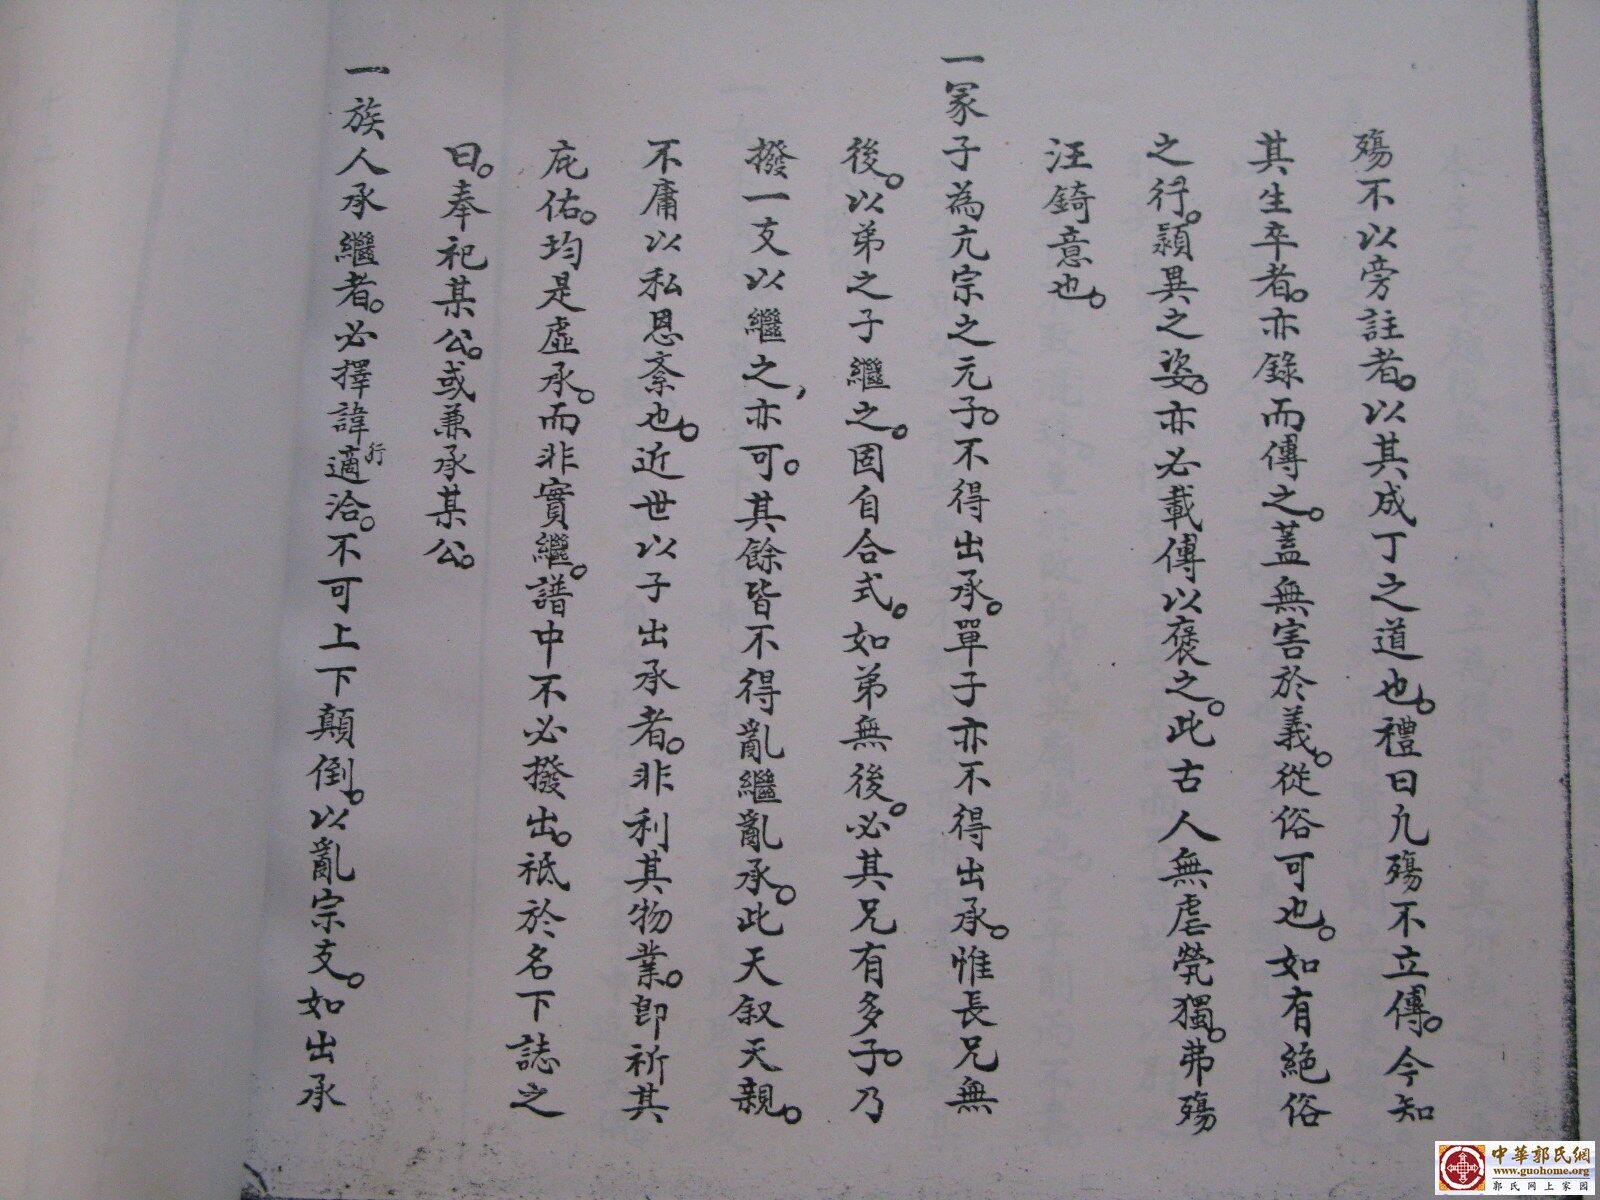 殤不以旁註者。以其成丁之道也。禮曰凢殤不立傳。今知
其生卒者。亦錄而傳之。蓋無害於義。從俗可也。如有絕俗
之行。頴異之姿。亦必載傳以褒之。此古人無虐煢獨。弗殤
汪錡意也。
一冢子為亢宗之元子。不得出承。單子亦不得出承。惟長兄無
後。以弟之子繼之。固自合式。如弟無後。必其兄有多子。乃
撥一支以繼之,亦可。其餘皆不得亂繼亂承。此天叙天親。
不庸以私恩紊也。近世以子出承者。非利其物業。即祈其
庇佑。均是虛承。而非實繼。譜中不必撥出。祗於名下誌之
曰。奉祀某公。或兼承某公。
一族人承繼者。必擇諱行適洽。不可上下顛倒。以亂宗支。如出承
中華郭氏網
www.guohome.org
郭氏网上家园